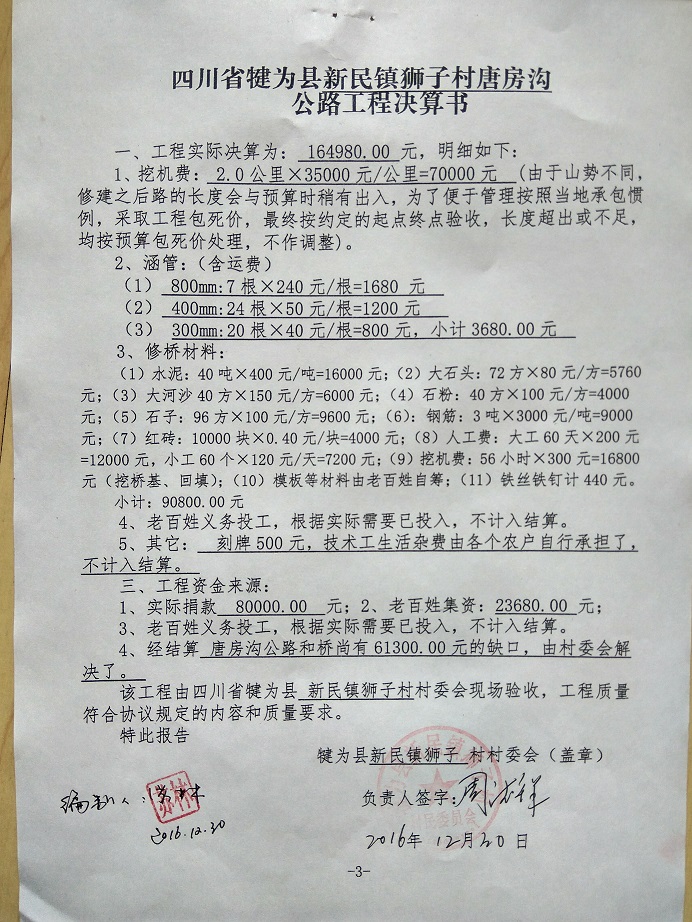 四川省犍为县新民镇狮子村唐房沟
公路工程决算书
一、工程实际决算为： 164980.00 元，明细如下：
1、挖机费： 2.0公里×35000元/公里=70000元 (由于山势不同，
修建之后路的长度会与预算时稍有出入，为了便于管理按照当地承包惯
例，采取工程包死价，最终按约定的起点终点验收，长度超出或不足，
均按预算包死价处理，不作调整)。
2、涵管：(含运费)
（1） 800mm:7根×240元/根=1680 元
（2） 400mm:24根×50元/根=1200元
（3） 300mm:20根×40元/根=800元，小计3680.00元
3、修桥材料：
（1）水泥：40吨×400元/吨=16000元；（2）大石头：72方×80元/方=5760
元；（3）大河沙40方×150元/方=6000元；（4）石粉：40方×100元/方=4000
元；（5）石子：96方×100元/方=9600元；（6）：钢筋：3吨×3000元/吨=9000
元；（7）红砖：10000块×0.40元/块=4000元；（8）人工费：大工60天×200元
=12000元，小工60个×120元/天=7200元；（9）挖机费：56小时×300元=16800
元（挖桥基、回填）；（10）模板等材料由老百姓自筹；（11）铁丝铁钉计440元。
小计：90800.00元
4、老百姓义务投工，根据实际需要已投入，不计入结算。
5、其它： 刻牌500元，技术工生活杂费由各个农户自行承担了，
不计入结算。
三、工程资金来源：
1、实际捐款 80000.00 元；2、老百姓集资：23680.00元；
3、老百姓义务投工，根据实际需要已投入，不计入结算。
4、经结算 唐房沟公路和桥尚有61300.00元的缺口，由村委会解
决了。
该工程由四川省犍为县 新民镇狮子村村委会现场验收，工程质量
符合协议规定的内容和质量要求。
特此报告
犍为县新民镇狮子 村村委会（盖章）
编制人：
负责人签字：
2016.12.20
2016年12月20日
-3-